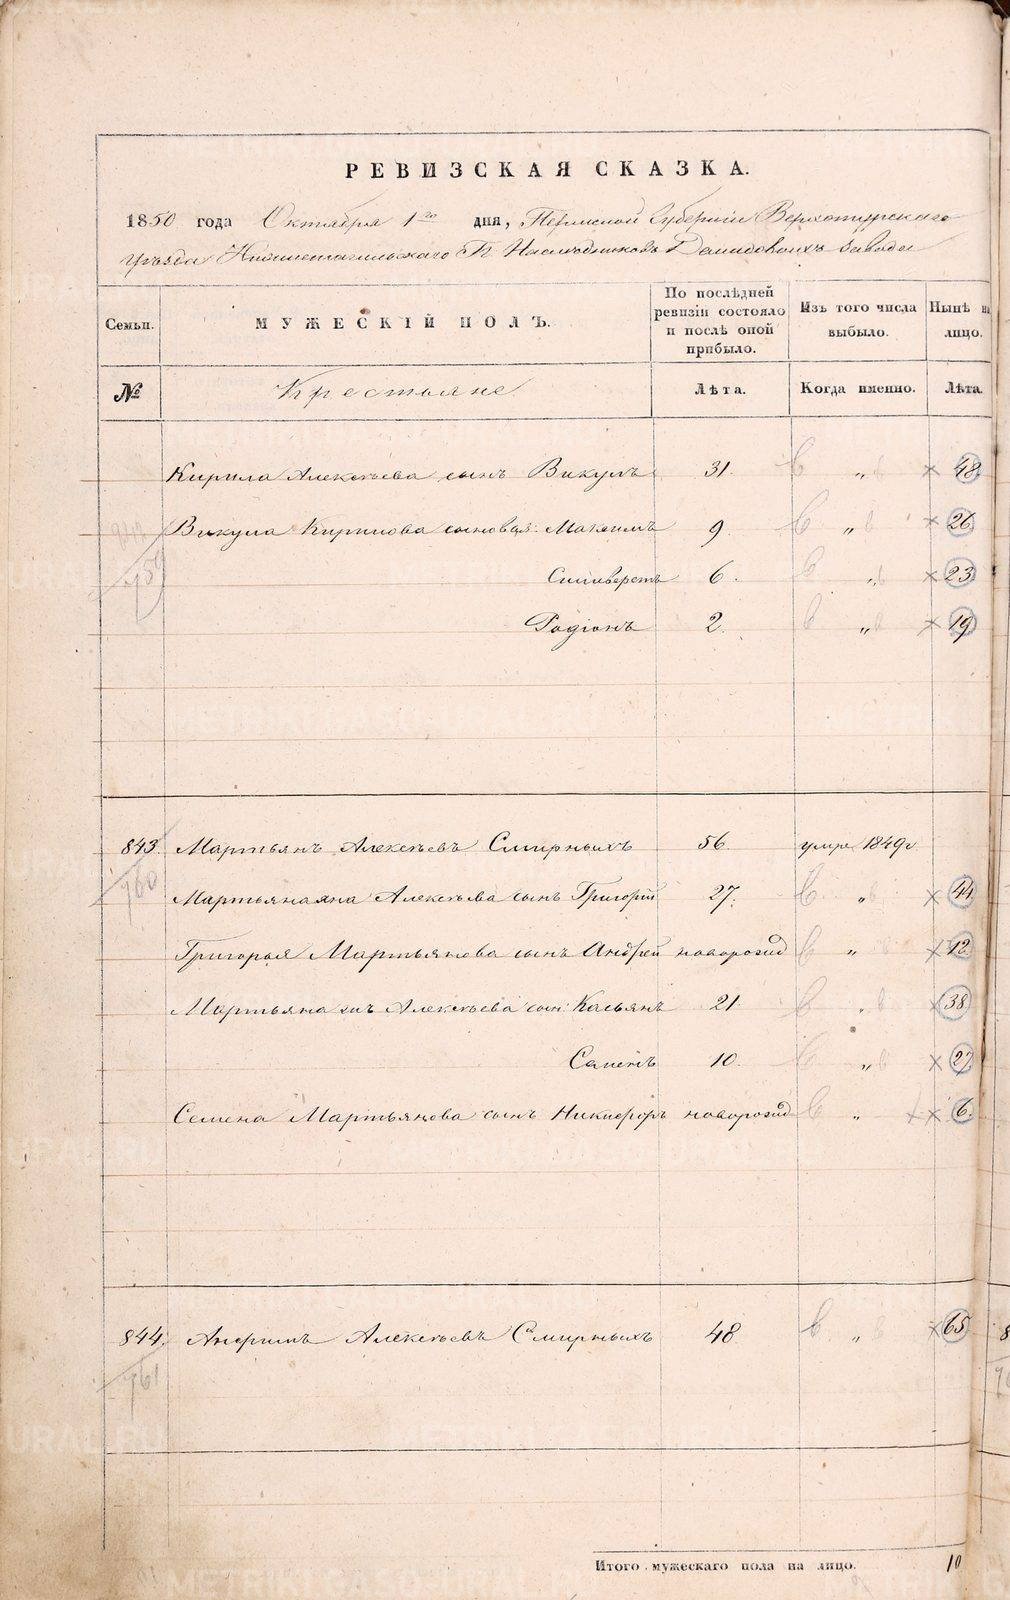 РЕВИЗСКАЯ СКАЗКА.
1850 года Октября 1го дня, Пермской Губернiи Верхотурскаго
Уѣзда Нижнетагильскаго Г. Наслѣдниковъ Демидовыхъ завода
Семьи. МУЖЕСКIЙ ПОЛЪ. По послѣдней ревизiи состояло и послѣ оной прибыло. Изъ того числа выбыло. Нынѣ на лицо.
№ Крестьяне Лѣта. Когда именно. Лѣта
Кирила Алексѣева сынъ Викулъ 31. „ 48
842 Викула Кирилова сыновья: Максимъ 9. „ 26
759 Силиверстъ 6. „ 23
Родiонъ 2. „ 19
843. Мартьянъ Алексѣевъ Смирныхъ 56. умре 1849г
760 Мартьяна Алексѣева сынъ Григорiй 27. „ 44
Григорья Мартьянова сынъ Андрей новорожд „ 12.
Мартьяна Алексѣева сын: Касьянъ 21 „ 38
Семенъ 10. „ 27
Семена Мартьянова сынъ Никифоръ новорожд „ 6.
844. Анфимъ Алексѣевъ Смирныхъ 48 „ 65
761
Итого мужескаго пола на лицо. 10
METRIKI.GASO-URAL.RU